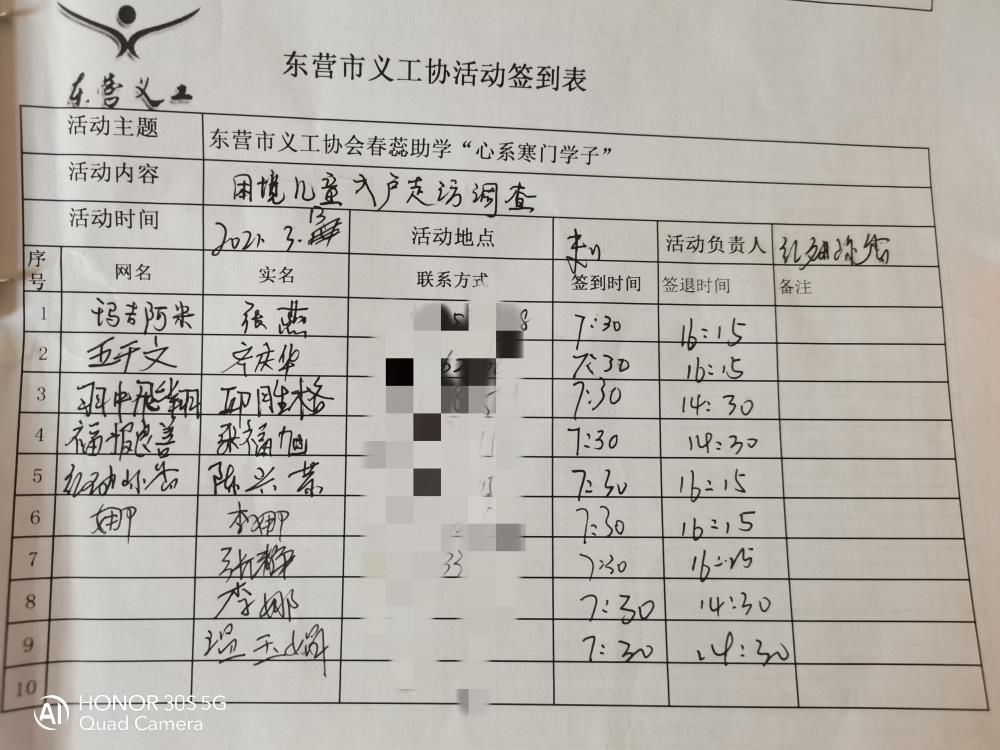 东营义工
东营市义工协活动签到表
活动主题 东营市义工协会春蕊助学“心系寒门学子”
活动内容 困境儿童入户走访调查
活动时间 2021.3.13 活动地点 活动负责人
序号 网名 实名 联系方式 签到时间 签退时间 备注
1 玛吉阿米 张燕 5 8 7:30 16:15
2 62 7:30 16:15
3 8 5 7:30 14:30
4 福报良善 11 7:30 14:30
5 陈兴荣 7:30 16:15
6 娜 李娜 7:30 16:15
7 张静 33 7:30 16:15
8 李娜 7:30 14:30
9 温玉娟 7:30 14:30
10
AI HONOR 30S 5G
Quad Camera